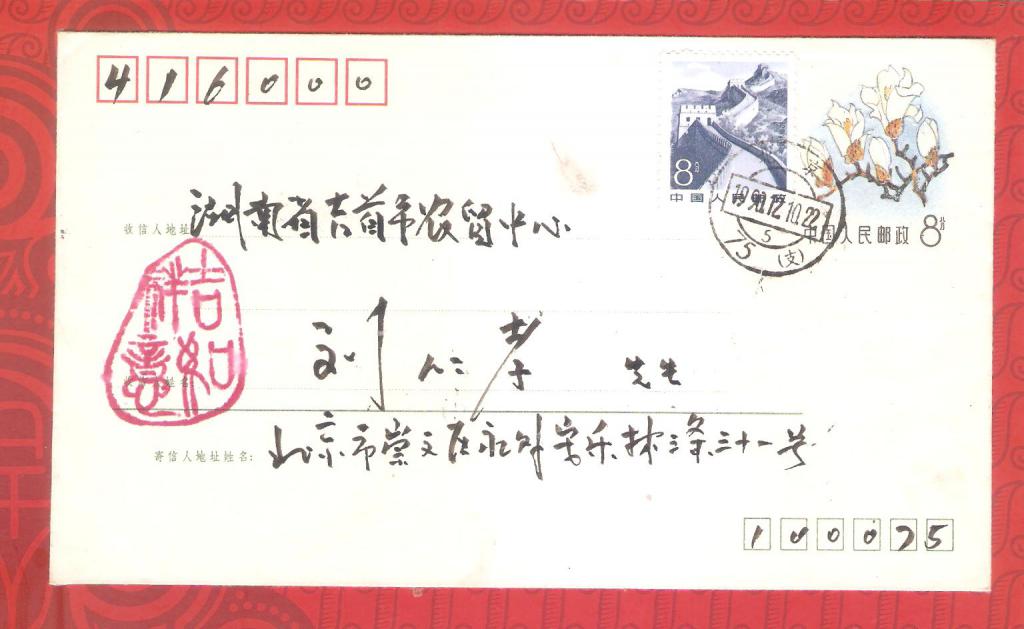 416000
8分
中国人民邮政
北京
1990.12.10.22
5
75(支)
中国人民邮政 8分
收信人地址
湖南省吉首市农贸中心
吉祥如意
刘仁孝 先生
姓名
寄信人地址姓名:
北京市崇文区永外安乐林三条三十一号
100075